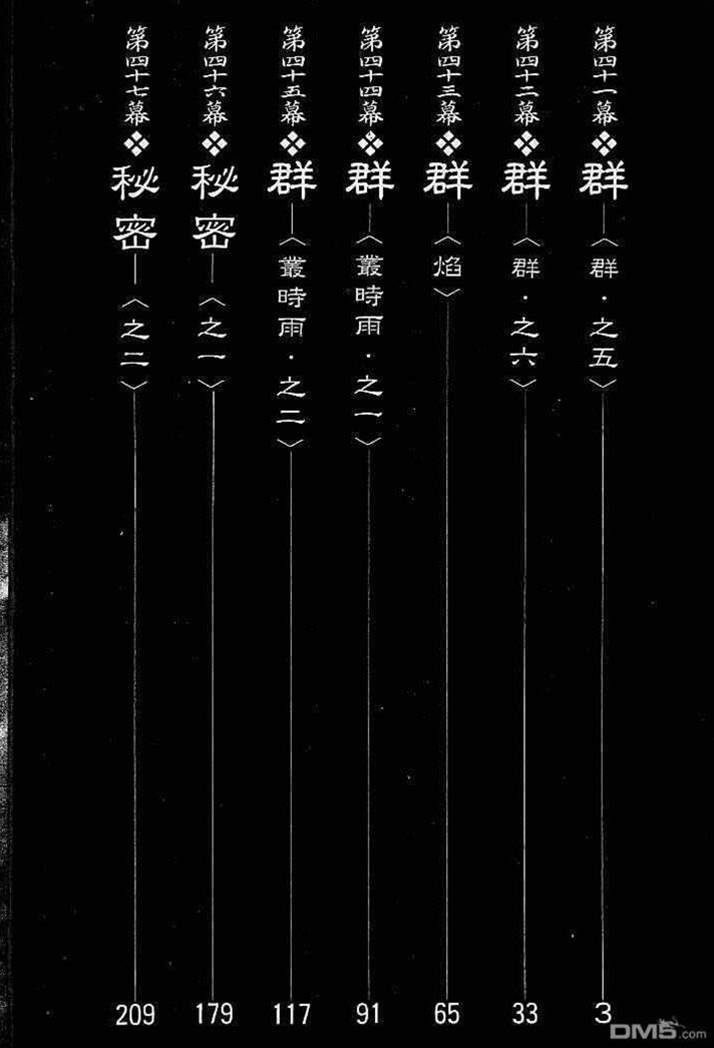 第四十一幕❖群—〈群・之五〉3
第四十二幕❖群—〈群・之六〉33
第四十三幕❖群—〈焰〉65
第四十四幕❖群—〈叢時雨・之一〉91
第四十五幕❖群—〈叢時雨・之二〉117
第四十六幕❖秘密—〈之一〉179
第四十七幕❖秘密—〈之二〉209
DM5.com